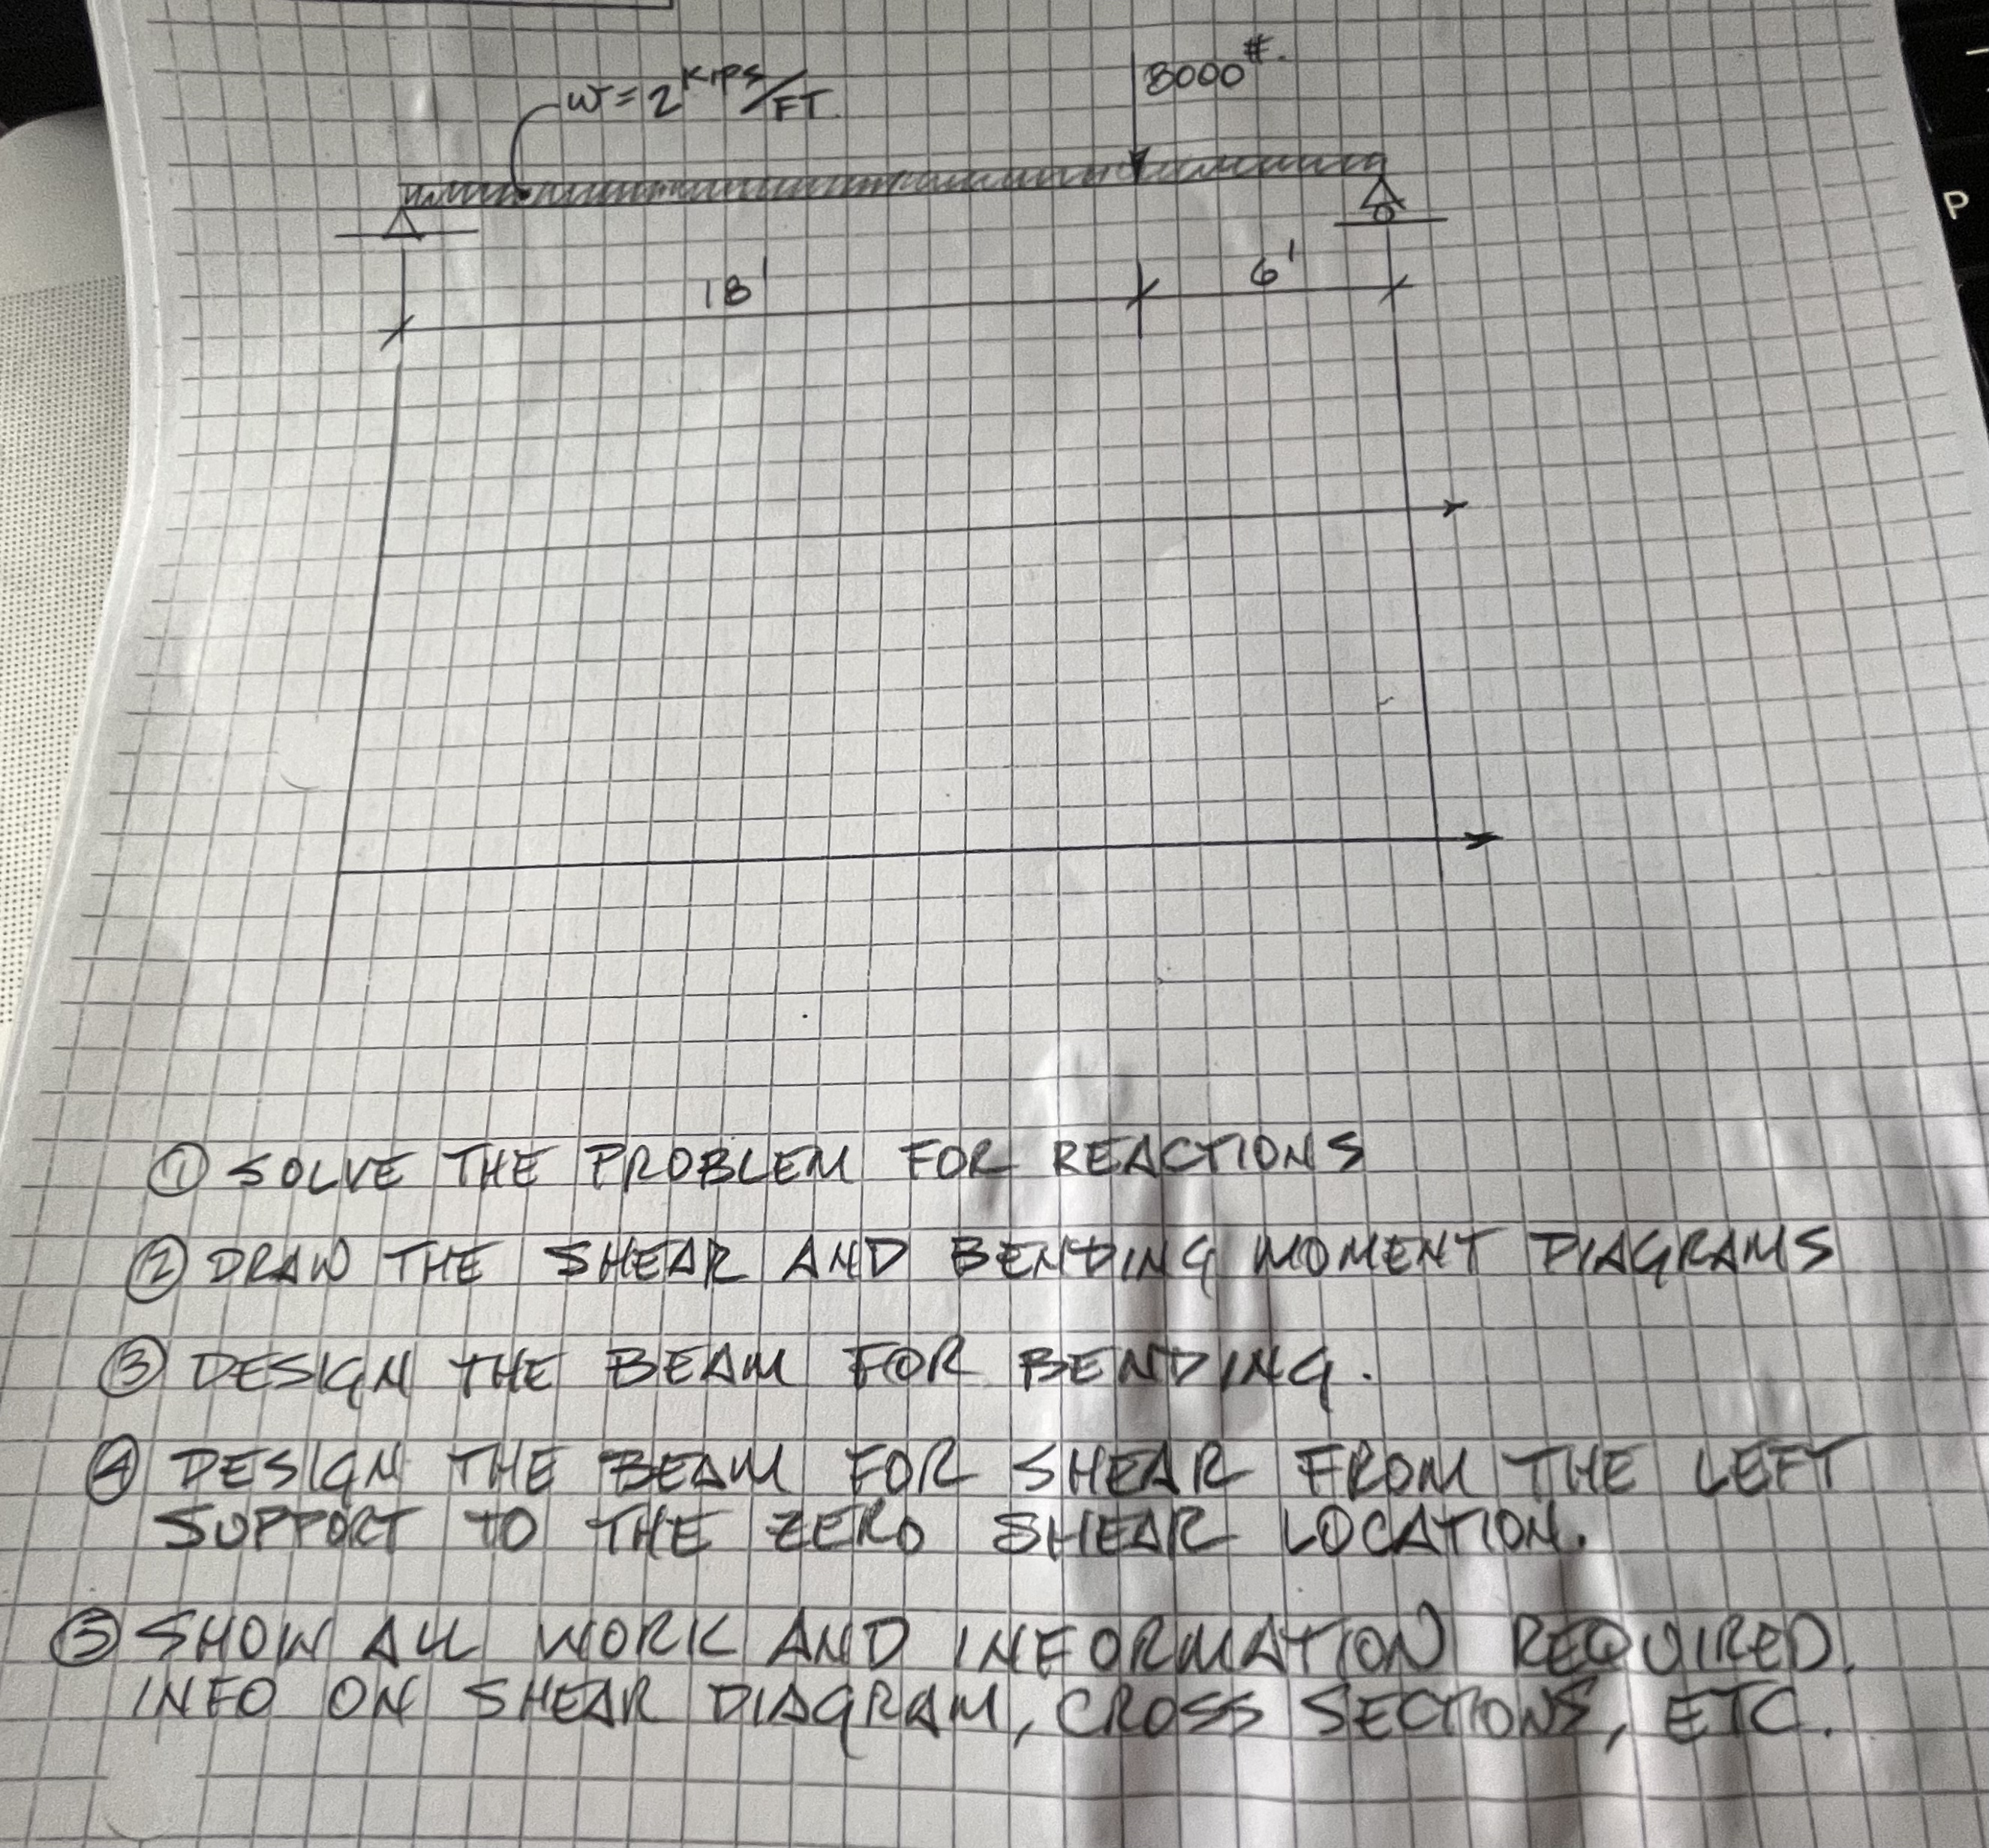 w = 2 KIPS/FT.
8000#.
18'
6'
P
① SOLVE THE PROBLEM FOR REACTIONS
② DRAW THE SHEAR AND BENDING MOMENT DIAGRAMS
③ DESIGN THE BEAM FOR BENDING.
④ DESIGN THE BEAM FOR SHEAR FROM THE LEFT
SUPPORT TO THE ZERO SHEAR LOCATION.
⑤ SHOW ALL WORK AND INFORMATION REQUIRED.
INFO ON SHEAR DIAGRAM, CROSS SECTIONS, ETC.